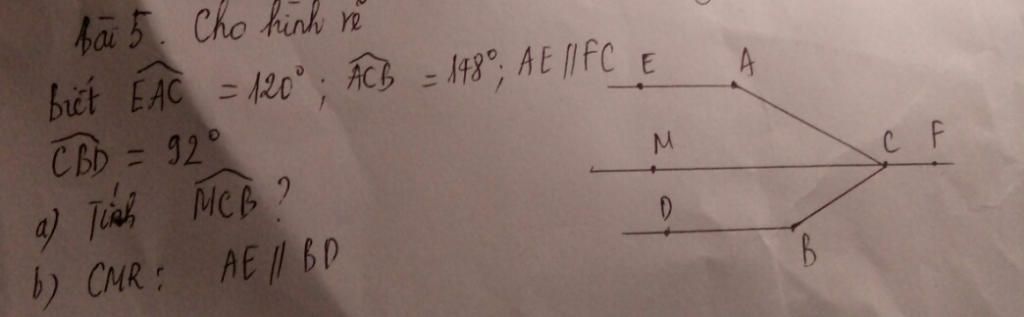 bài 5. Cho hình vẽ
biết EAC = 120°; ACB = 148°; AE // FC
CBD = 92°
a) Tính MCB ?
b) CMR: AE // BD
E A
M C F
D
B